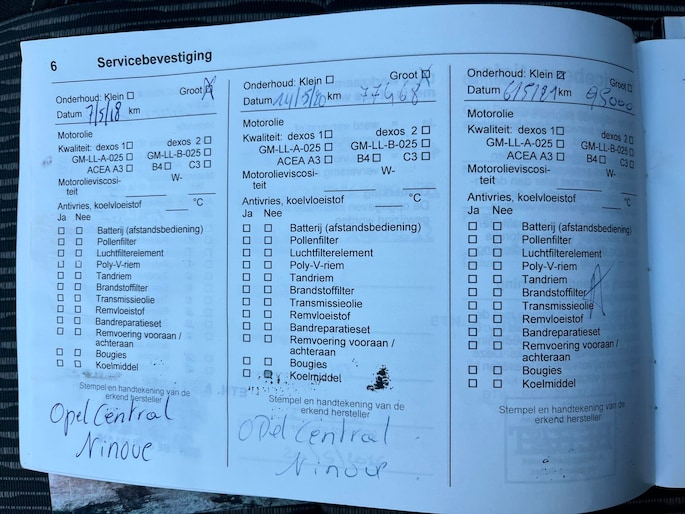 6 Servicebevestiging
Onderhoud: Klein Groot
Datum 7/5/18 km
Motorolie
Kwaliteit: dexos 1 dexos 2
GM-LL-A-025 GM-LL-B-025
ACEA A3 B4 C3
Motorolieviscosi- W-
teit
Antivries, koelvloeistof °C
Ja Nee
Batterij (afstandsbediening)
Pollenfilter
Luchtfilterelement
Poly-V-riem
Tandriem
Brandstoffilter
Transmissieolie
Remvloeistof
Bandreparatieset
Remvoering vooraan /
achteraan
Bougies
Koelmiddel
Stempel en handtekening van de
erkend hersteller
Opel Central
Ninove
Onderhoud: Klein Groot
Datum 14/5/20 km 77468
Motorolie
Kwaliteit: dexos 1 dexos 2
GM-LL-A-025 GM-LL-B-025
ACEA A3 B4 C3
Motorolieviscosi- W-
teit
Antivries, koelvloeistof °C
Ja Nee
Batterij (afstandsbediening)
Pollenfilter
Luchtfilterelement
Poly-V-riem
Tandriem
Brandstoffilter
Transmissieolie
Remvloeistof
Bandreparatieset
Remvoering vooraan /
achteraan
Bougies
Koelmiddel
Stempel en handtekening van de
erkend hersteller
Opel Central
Ninove
Onderhoud: Klein Groot
Datum 6/5/21 km 95000
Motorolie
Kwaliteit: dexos 1 dexos 2
GM-LL-A-025 GM-LL-B-025
ACEA A3 B4 C3
Motorolieviscosi- W-
teit
Antivries, koelvloeistof °C
Ja Nee
Batterij (afstandsbediening)
Pollenfilter
Luchtfilterelement
Poly-V-riem
Tandriem
Brandstoffilter
Transmissieolie
Remvloeistof
Bandreparatieset
Remvoering vooraan /
achteraan
Bougies
Koelmiddel
Stempel en handtekening van de
erkend hersteller